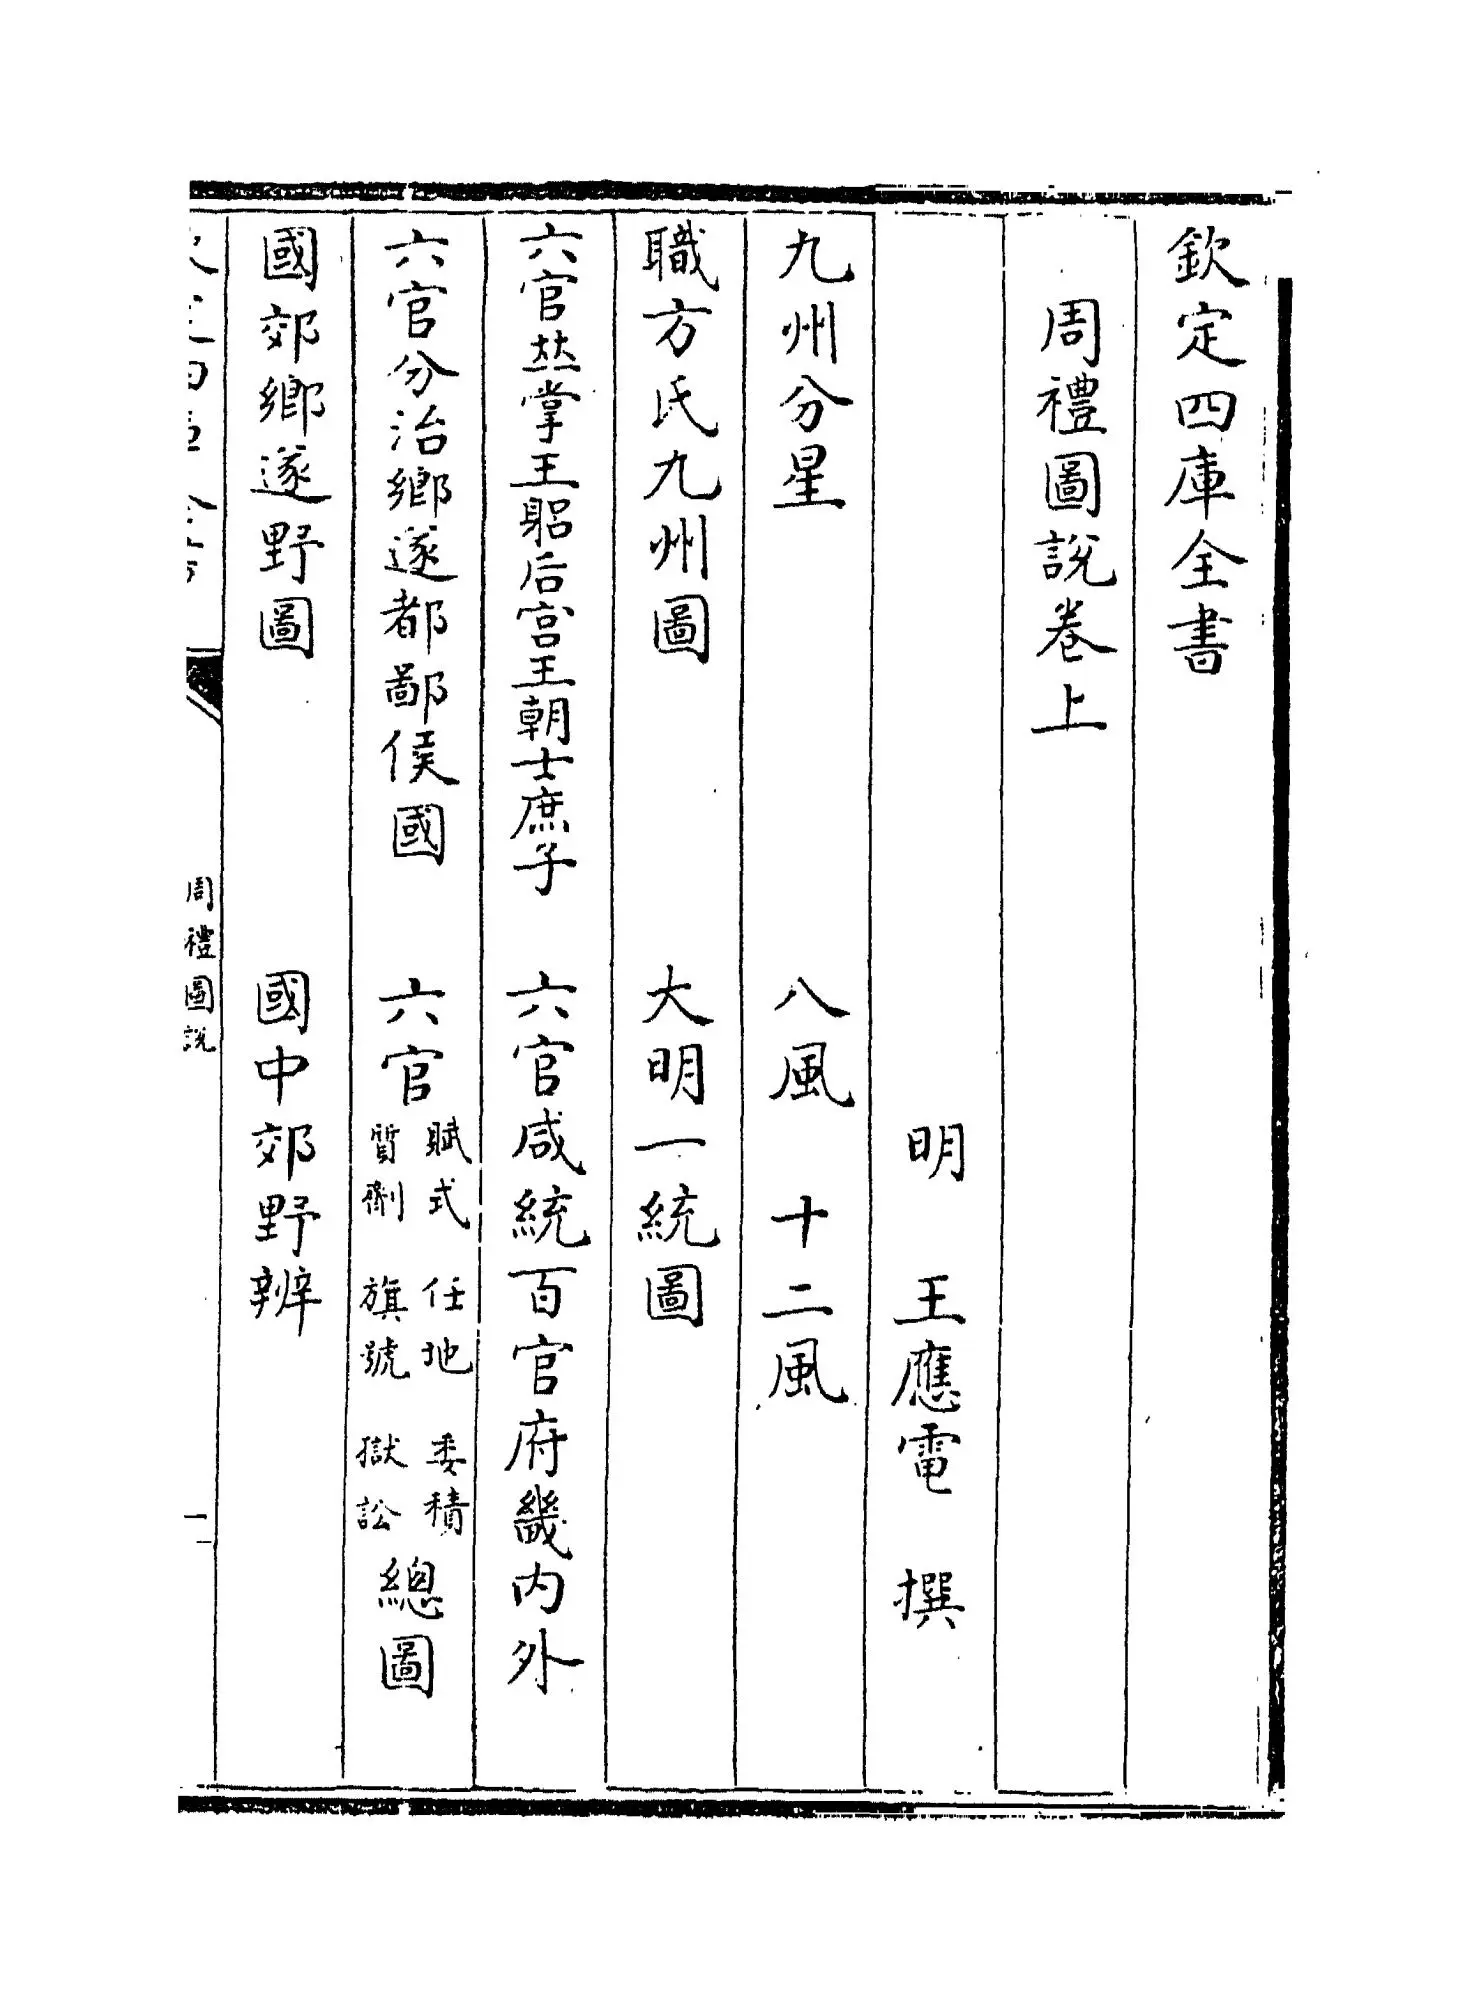 欽定四庫全書
周禮圖說卷上
明　王應電　撰
九州分星　八風　十二風
職方氏九州圖　大明一統圖
六官𠀤掌王躬后宮王朝士庶子　六官咸統百官府畿內外
六官分治鄉遂都鄙侯國　六官賦式質劑　任地旗號　委積獄訟總圖
國郊鄉遂野圖　國中郊野辨
周禮圖說
一